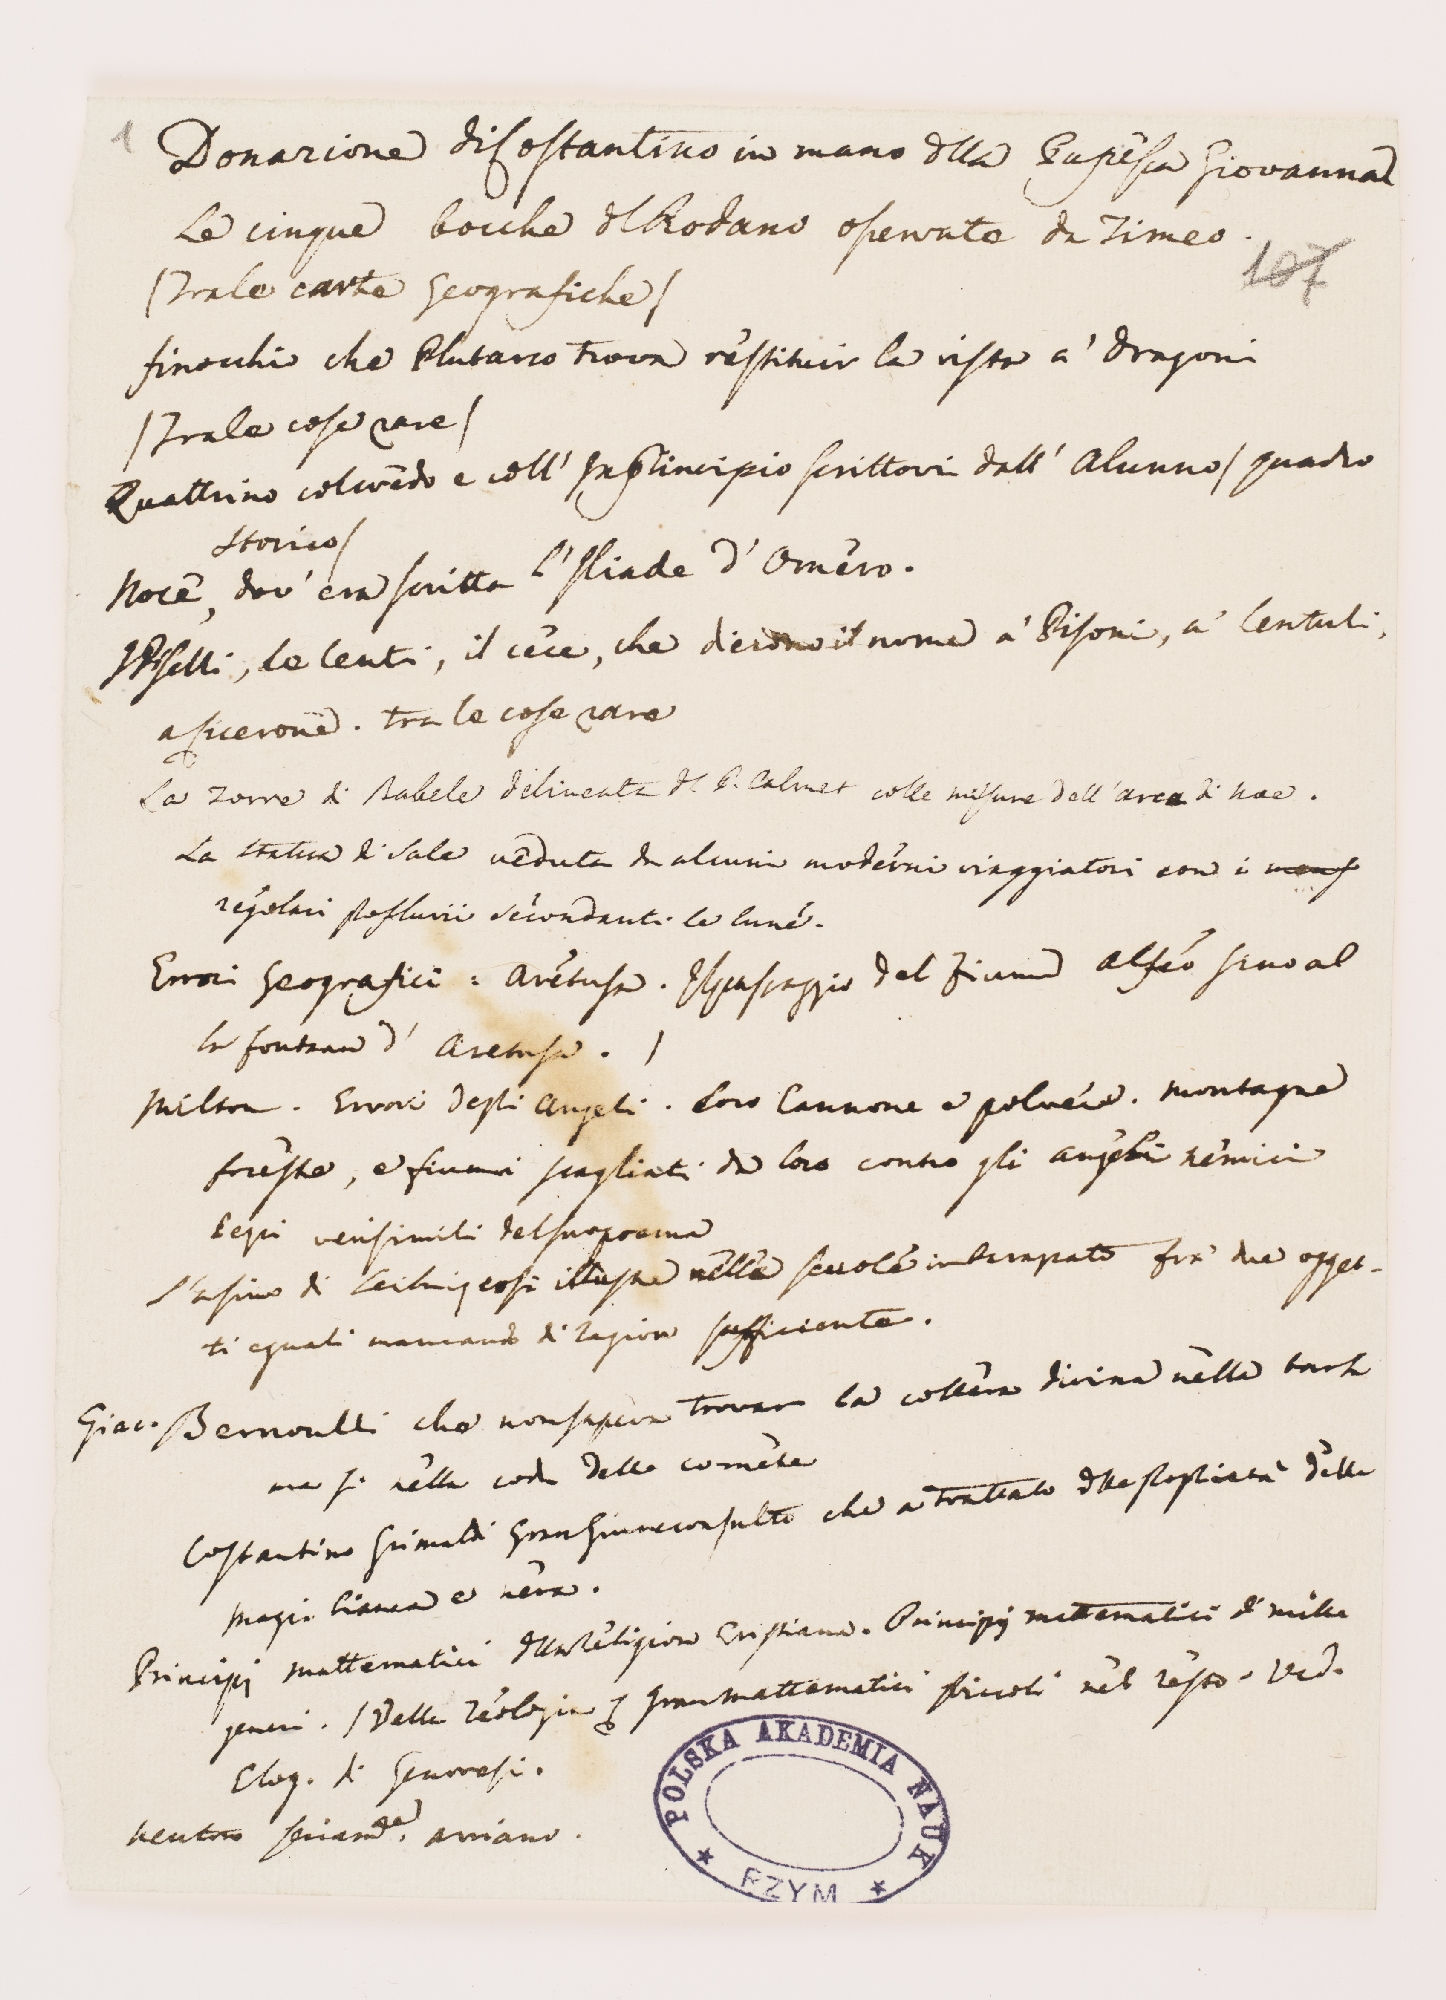 1
Donazione di Costantino in mano dlla Papéssa Giovanna
Le cinque bocche dl Rodano osservate da Timeo.
107
/Tra le carte Geografiche/
finocchi che Plutarco trova réstituir la vista a' dragoni
/Tra le cose rare/
Quattrino col crédo e coll' In principio scrittovi dall' Alunno/ quadro
storico/
Nocé, dov' era scritta l'Iliade d' Oméro.
I Piselli, le lenti, il céce, che dierono il nome a' Pisoni, a' Lentuli,
a Cicerone. tra le cose rare
La Torre di Babele delineata dl P. Calmet colle misure dell' arca di Noe.
La statua di sale véduta da alcuni modérni viaggiatori con i
régolari proflussi sécondanti le luné.
Errori Geografici: Arétusa. Il passaggio del fiume Alféo sino al
la fontana d' Aretusa. /
Milton. Errori degli Angeli. Loro Cannone e polvére. montagne
foréste, e fiumi scagliati da loro contro gli angéli némici
Segni verisimili del suo poema
L'asino di Leibniz così illustre nélle scuolé imbarazzato fra' due ogget-
ti eguali mancando di ragion sufficiente.
Giac. Bernoulli che non sapeva trovar la colléra divina nélla barba
ma si nélla coda delle cométe
Costantino Grimaldi Gran Giureconsulto che a trattato dlle proprietà délla
magia bianca e néra.
Principj mattematici dlla Réligion Cristiana. Principj mattematici di mille
generi. /Della Téologia gran mattematici piccoli nél résto. Ved.
Elog. di Genovesi.
Neutono arriano.
POLSKA AKADEMIA NAUK
RZYM